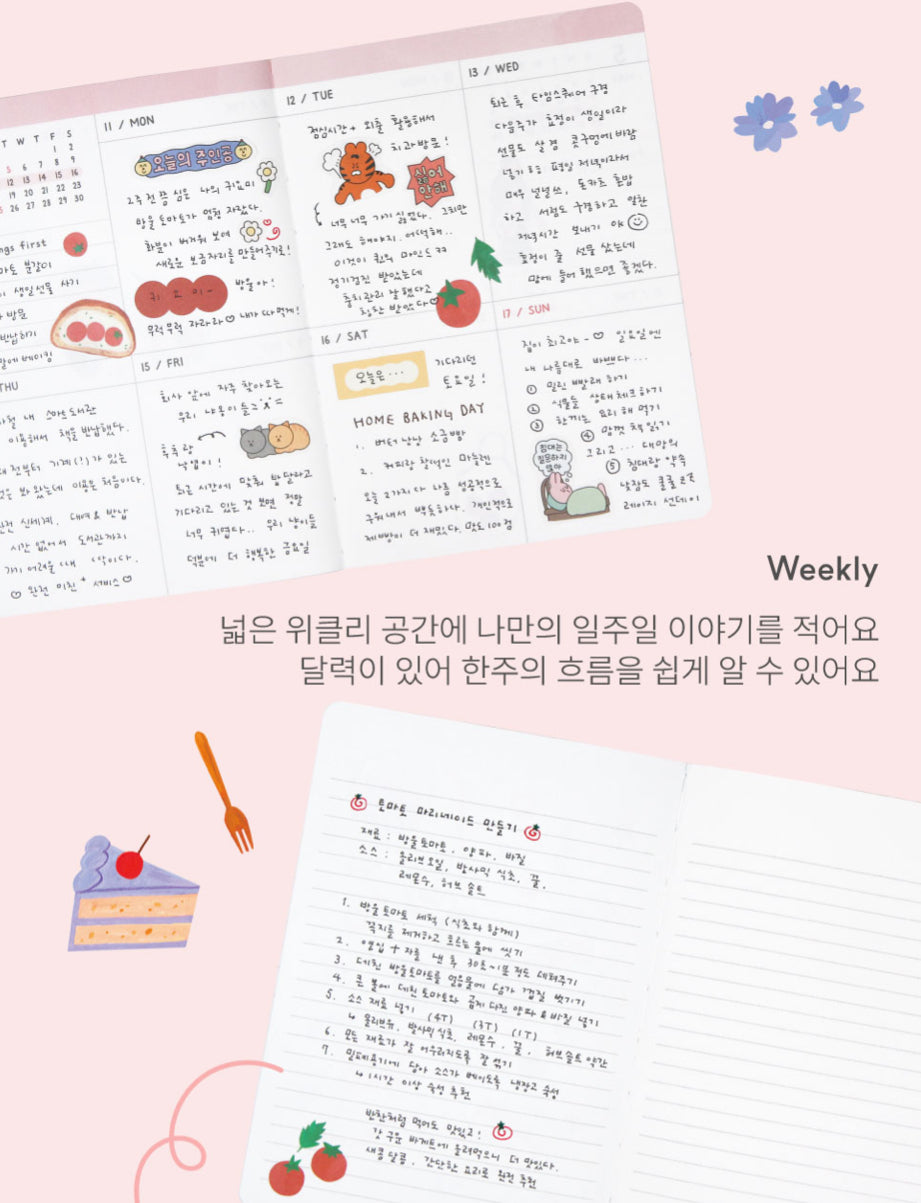 T W T F S
1 2
5 6 7 8 9
12 13 14 15 16
19 20 21 22 23
26 27 28 29 30
ngs first
분갈이
생일선물 사기
방문
반납하기
베이킹
11 / MON
오늘의 주인공
2주 전쯤 심은 나의 귀요미
방울토마토가 엄청 자랐다.
화분이 버거워 보여
새로운 보금자리를 만들어주기로!
귀 요 미 ~
방울아!
무럭무럭 자라라♡ 내가 따먹게!
12 / TUE
점심시간 + 외출 활용해서
치과방문!
싫어
안해
너무너무 가기 싫었다. 그치만
그래도 해야지. 어떡해..
이것이 퀸의 마인드 ㅋㅋ
정기검진 받았는데
충치관리 잘했다고
칭찬 받았다♡
13 / WED
퇴근 후 타임스퀘어 구경
다음주가 효정이 생일이라
선물도 살 겸 콧구멍에 바람
넣기 ㅎㅎ 평일 저녁이라서
매우 널널쓰, 돈카츠 혼밥
하고 서점도 구경하고 알찬
저녁시간 보내기 야
효정이 줄 선물 샀는데
맘에 들어 했으면 좋겠다.
THU
내 스마트도서관
이용해서 책을 반납했다.
전부터 기계(?)가 있는
봐 왔는데 이용은 처음이다.
신세계. 대여 & 반납
시간 없어서 도서관까지
가기 어려울
♡ 완전 미친 + 서비스 ♡
15 / FRI
회사 앞에 자주 찾아오는
우리 냐옹이들
후추랑
냥냠이!
퇴근 시간에 맞춰 밥달라고
기다리고 있는 것 보면 정말
너무 귀엽다.. 우리 냥이들
덕분에 더 행복한 금요일
16 / SAT
오늘은...
기다리던
토요일!
HOME BAKING DAY
1. 버터 냥냥 소금빵
2. 커피랑 찰떡인 마들렌
오늘 2가지 다 나름 성공적으로
구워내서 뿌듯하다. 개인적으로
제빵이 더 재밌다. 맛도 100점
17 / SUN
집이 최고야 ~ ♡ 일요일엔
내 나름대로 바쁘다...
① 밀린 빨래 하기
② 식물들 상태체크하기
③ 한끼는 요리 해 먹기
④ 맘껏 책 읽기
그리고... 대망의
⑤ 침대랑 약속
침대는
질문하지
않아
낮잠도 쿨쿨 코코
레이지 선데이
Weekly
넓은 위클리 공간에 나만의 일주일 이야기를 적어요
달력이 있어 한주의 흐름을 쉽게 알 수 있어요
토마토 마리네이드 만들기
재료 : 방울토마토, 양파, 바질
소스 : 올리브오일, 발사믹 식초, 꿀,
레몬즙, 허브 솔트
1. 방울토마토 세척 (식초와 함께)
꼭지를 제거하고 흐르는 물에 씻기
2. 열십 + 자를 낸 후 30초~1분 정도 데쳐주기
3. 데친 방울토마토를 얼음물에 담가 껍질 벗기기
4. 큰 볼에 데친 토마토와 곱게 다진 양파 & 바질 넣기
5. 소스 재료 넣기 (4T) (3T) (1T)
↳ 올리브유, 발사믹식초, 레몬즙, 꿀, 허브솔트 약간
6. 모든 재료가 잘 어우러지도록 잘 섞기
7. 밀폐용기에 담아 소스가 베이도록 냉장고 숙성
↳ 1시간 이상 숙성 추천
반찬처럼 먹어도 맛있고!
갓 구운 바게트에 올려먹으니 더 맛있다.
새콤달콤, 간단한 요리로 완전 추천